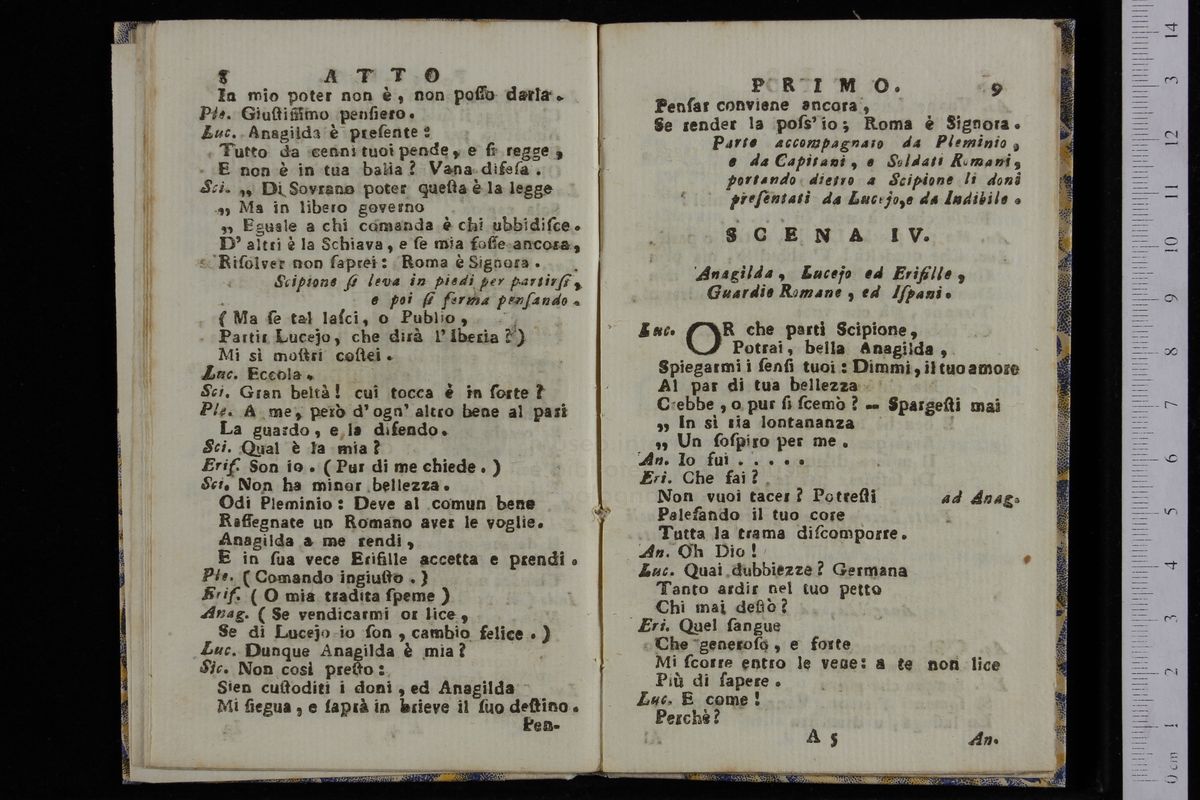 8 ATTO
In mio poter non è, non poſſo darla.
Ple. Giuſtiſſimo penſiero.
Luc. Anagilda è preſente:
Tutto da cenni tuoi pende, e ſi regge,
E non è in tua balia? Vana difeſa.
Sci. „ Di Sovrano poter queſta è la legge
„ Ma in libero governo
„ Eguale a chi comanda è chi ubbidiſce.
D' altri è la Schiava, e ſe mia foſſe ancora,
Riſolver non ſaprei: Roma è Signora.
Scipione ſi leva in piedi per partirſi,
e poi ſi ferma penſando.
( Ma ſe tal laſci, o Publio,
Partir Lucejo, che dirà l' Iberia? )
Mi sì moſtri coſtei.
Luc. Eccola.
Sci. Gran beltà! cui tocca è in ſorte?
Ple. A me, però d' ogn' altro bene al pari
La guardo, e la difendo.
Sci. Qual è la mia?
Erif. Son io. ( Pur di me chiede. )
Sci. Non ha minor bellezza.
Odi Pleminio: Deve al comun bene
Raſſegnate un Romano aver le voglie.
Anagilda a me rendi,
E in ſua vece Erifille accetta e prendi.
Ple. ( Comando ingiuſto. )
Erif. ( O mia tradita ſpeme )
Anag. ( Se vendicarmi or lice,
Se di Lucejo io ſon, cambio felice. )
Luc. Dunque Anagilda è mia?
Sic. Non così preſto:
Sien cuſtoditi i doni, ed Anagilda
Mi ſiegua, e ſaprà in brieve il ſuo deſtino.
Pen-
PRIMO. 9
Penſar conviene ancora,
Se render la poſs' io; Roma è Signora.
Parte accompagnato da Pleminio,
e da Capitani, e Soldati Romani,
portando dietro a Scipione li doni
preſentati da Lucejo, e da Indibile.
SCENA IV.
Anagilda, Lucejo ed Erifille,
Guardie Romane, ed Iſpani.
Luc. OR che partì Scipione,
Potrai, bella Anagilda,
Spiegarmi i ſenſi tuoi: Dimmi, il tuo amore
Al par di tua bellezza
Crebbe, o pur ſi ſcemò? — Spargeſti mai
„ In sì ria lontananza
„ Un ſoſpiro per me.
An. Io fui . . . . .
Eri. Che fai?
Non vuoi tacer? Potreſti ad Anag.
Paleſando il tuo core
Tutta la trama diſcomporre.
An. Oh Dio!
Luc. Quai dubbiezze? Germana
Tanto ardir nel tuo petto
Chi mai deſtò?
Eri. Quel ſangue
Che generoſo, e forte
Mi ſcorre entro le vene: a te non lice
Più di ſapere.
Luc. E come!
Perchè?
A 5 An.
0 cm 1 2 3 4 5 6 7 8 9 10 11 12 13 14